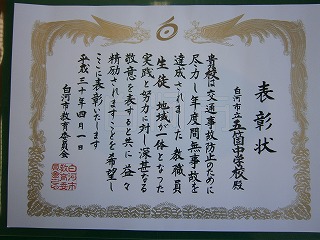 表彰状
白河市立五箇中学校殿
貴校は交通事故防止のために
尽力し年度間無事故を
達成されました教職員
生徒 地域が一体となった
実践と努力に対し深甚なる
敬意を表すると共に益々
精励されますことを希望し
ここに表彰いたします
平成三十年四月一日
白河市教育委員会